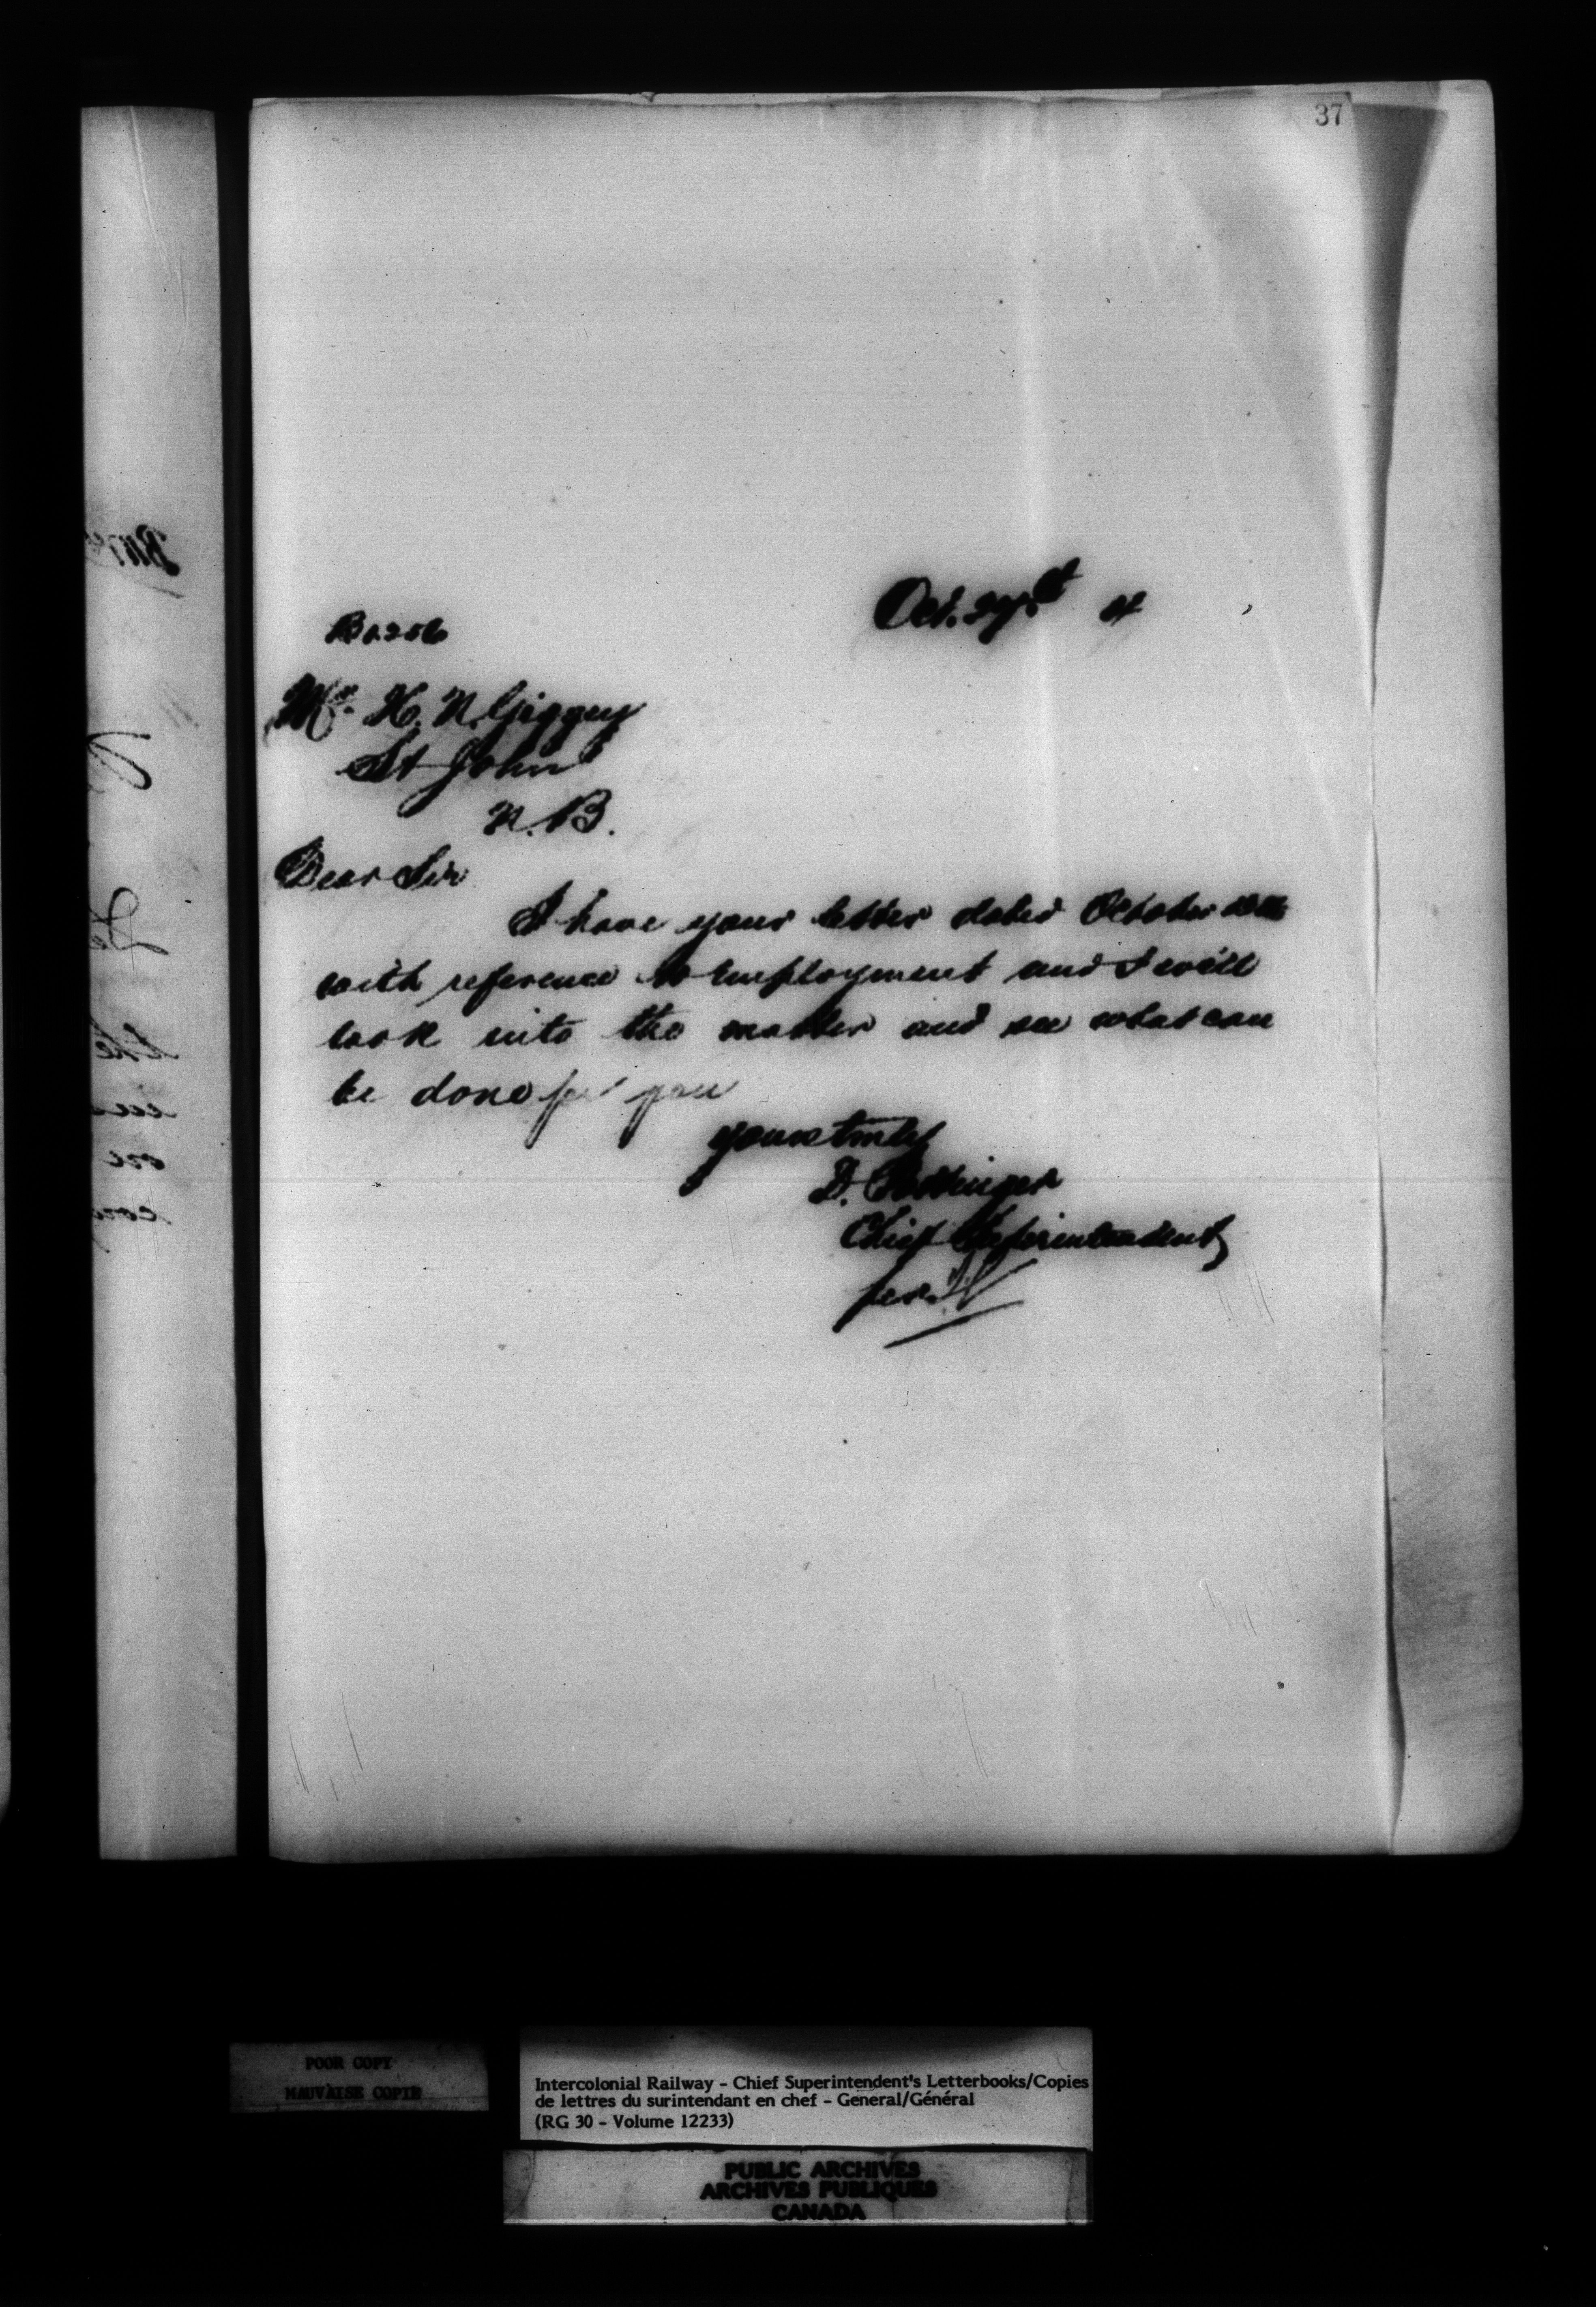 37
Oct. 27
Mr. H. N. Giggey
St John
N. B.
Dear Sir
I have your letter dated October
with reference to Employment and I will
look into the matter and see what can
be done for you
yours truly
D. Pottinger
Chief Superintendent
per
POOR COPY
MAUVAISE COPIE
Intercolonial Railway - Chief Superintendent's Letterbooks/Copies
de lettres du surintendant en chef - General/Général
(RG 30 - Volume 12233)
PUBLIC ARCHIVES
ARCHIVES PUBLIQUES
CANADA